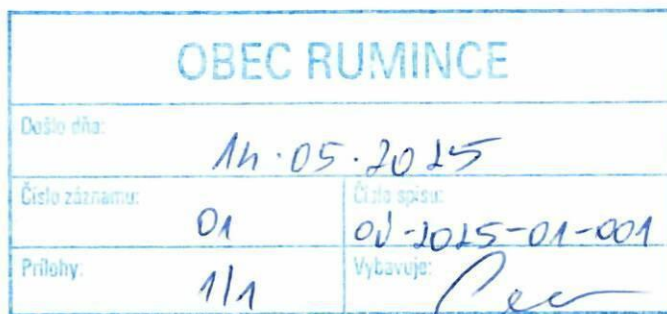 OBEC RUMINCE
Došlo dňa:
14.05.2025
Číslo záznamu:
01
Číslo spisu:
OÚ-2025-01-001
Prílohy:
1/1
Vybavuje: